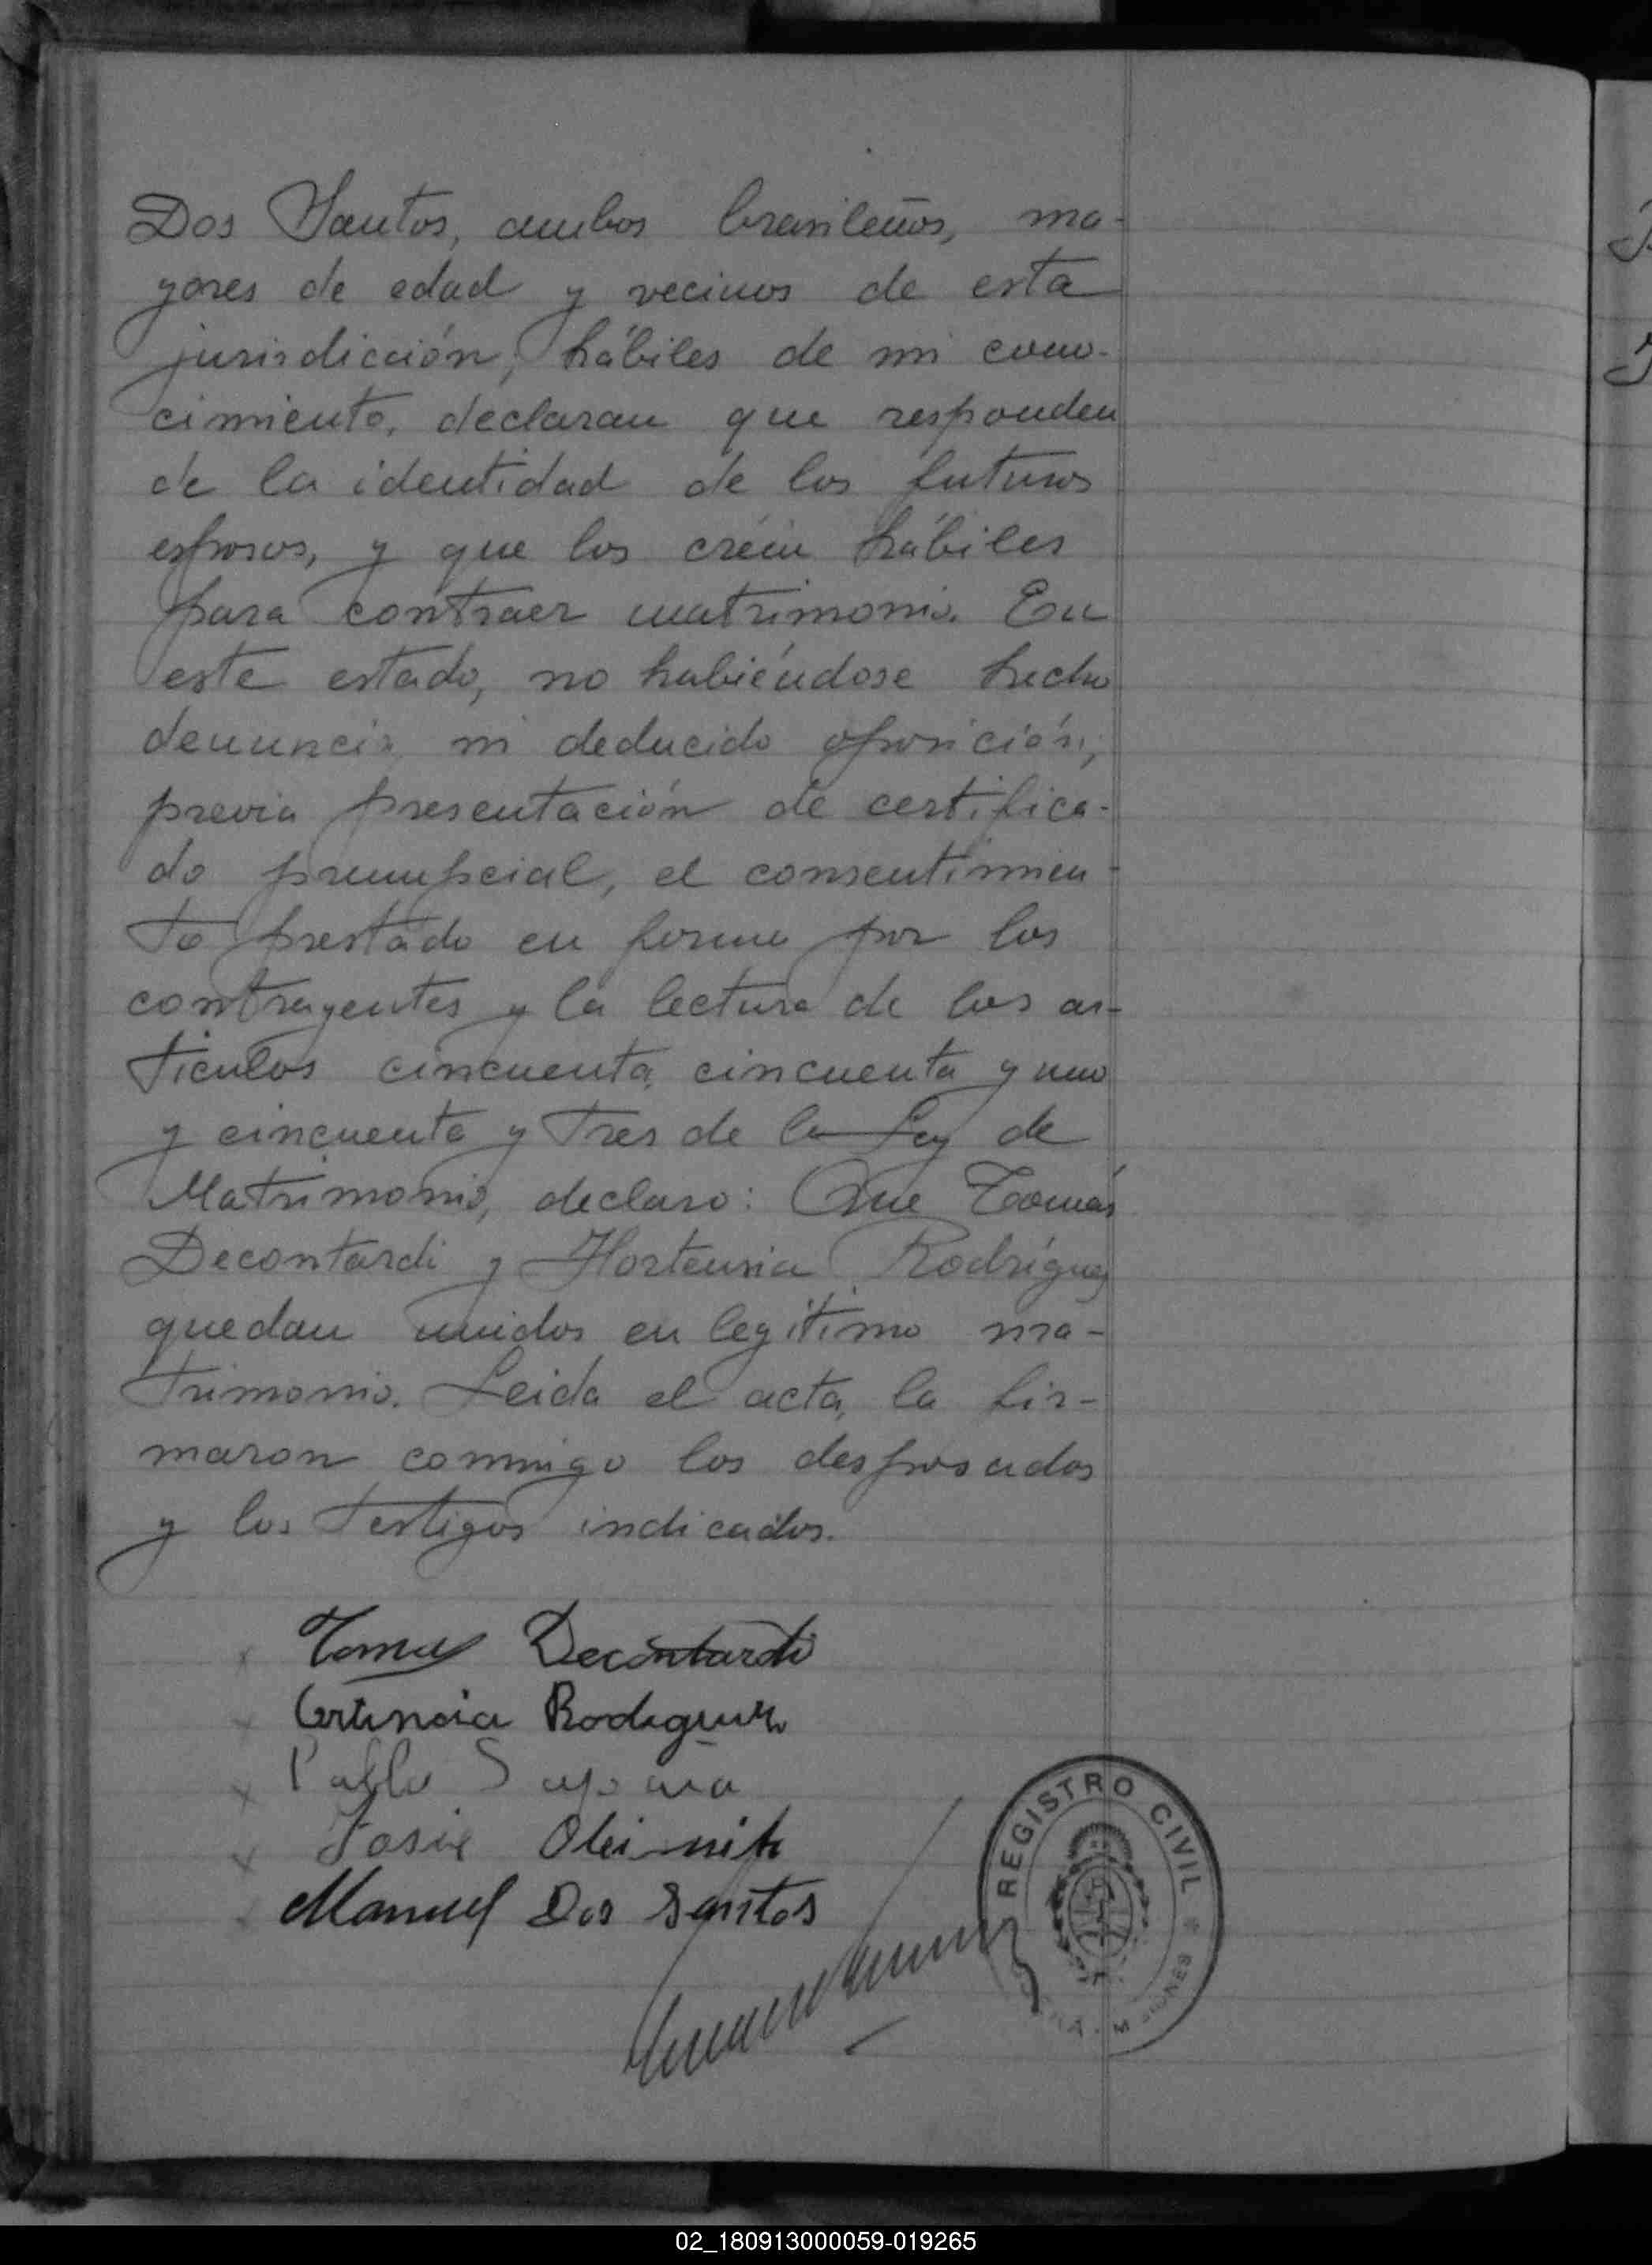 Dos Santos, ambos brasileños, ma-
yores de edad y vecinos de esta
jurisdicción, hábiles de mi cono-
cimiento, declaran que responden
de la identidad de los futuros
esposos, y que los créen hábiles
para contraer matrimonio. En
este estado, no habiéndose hecho
denuncia ni deducido oposición,
previa presentación de certifica-
do prenupcial, el consentimien-
to prestado en forma por los
contrayentes y la lectura de los ar-
tículos cincuenta, cincuenta y uno
y cincuenta y tres de la Ley de
Matrimonio, declaro: Que Tomás
Decontardi y Hortensia Rodríguez
quedan unidos en legítimo ma-
trimonio. Leida el acta, la fir-
maron conmigo los desposados
y los testigos indicados.
Tomas Decontardi
Ortencia Rodriguez
Pablo
Oleinik
Manuel Dos Santos
REGISTRO CIVIL
MISIONES
02_180913000059-019265